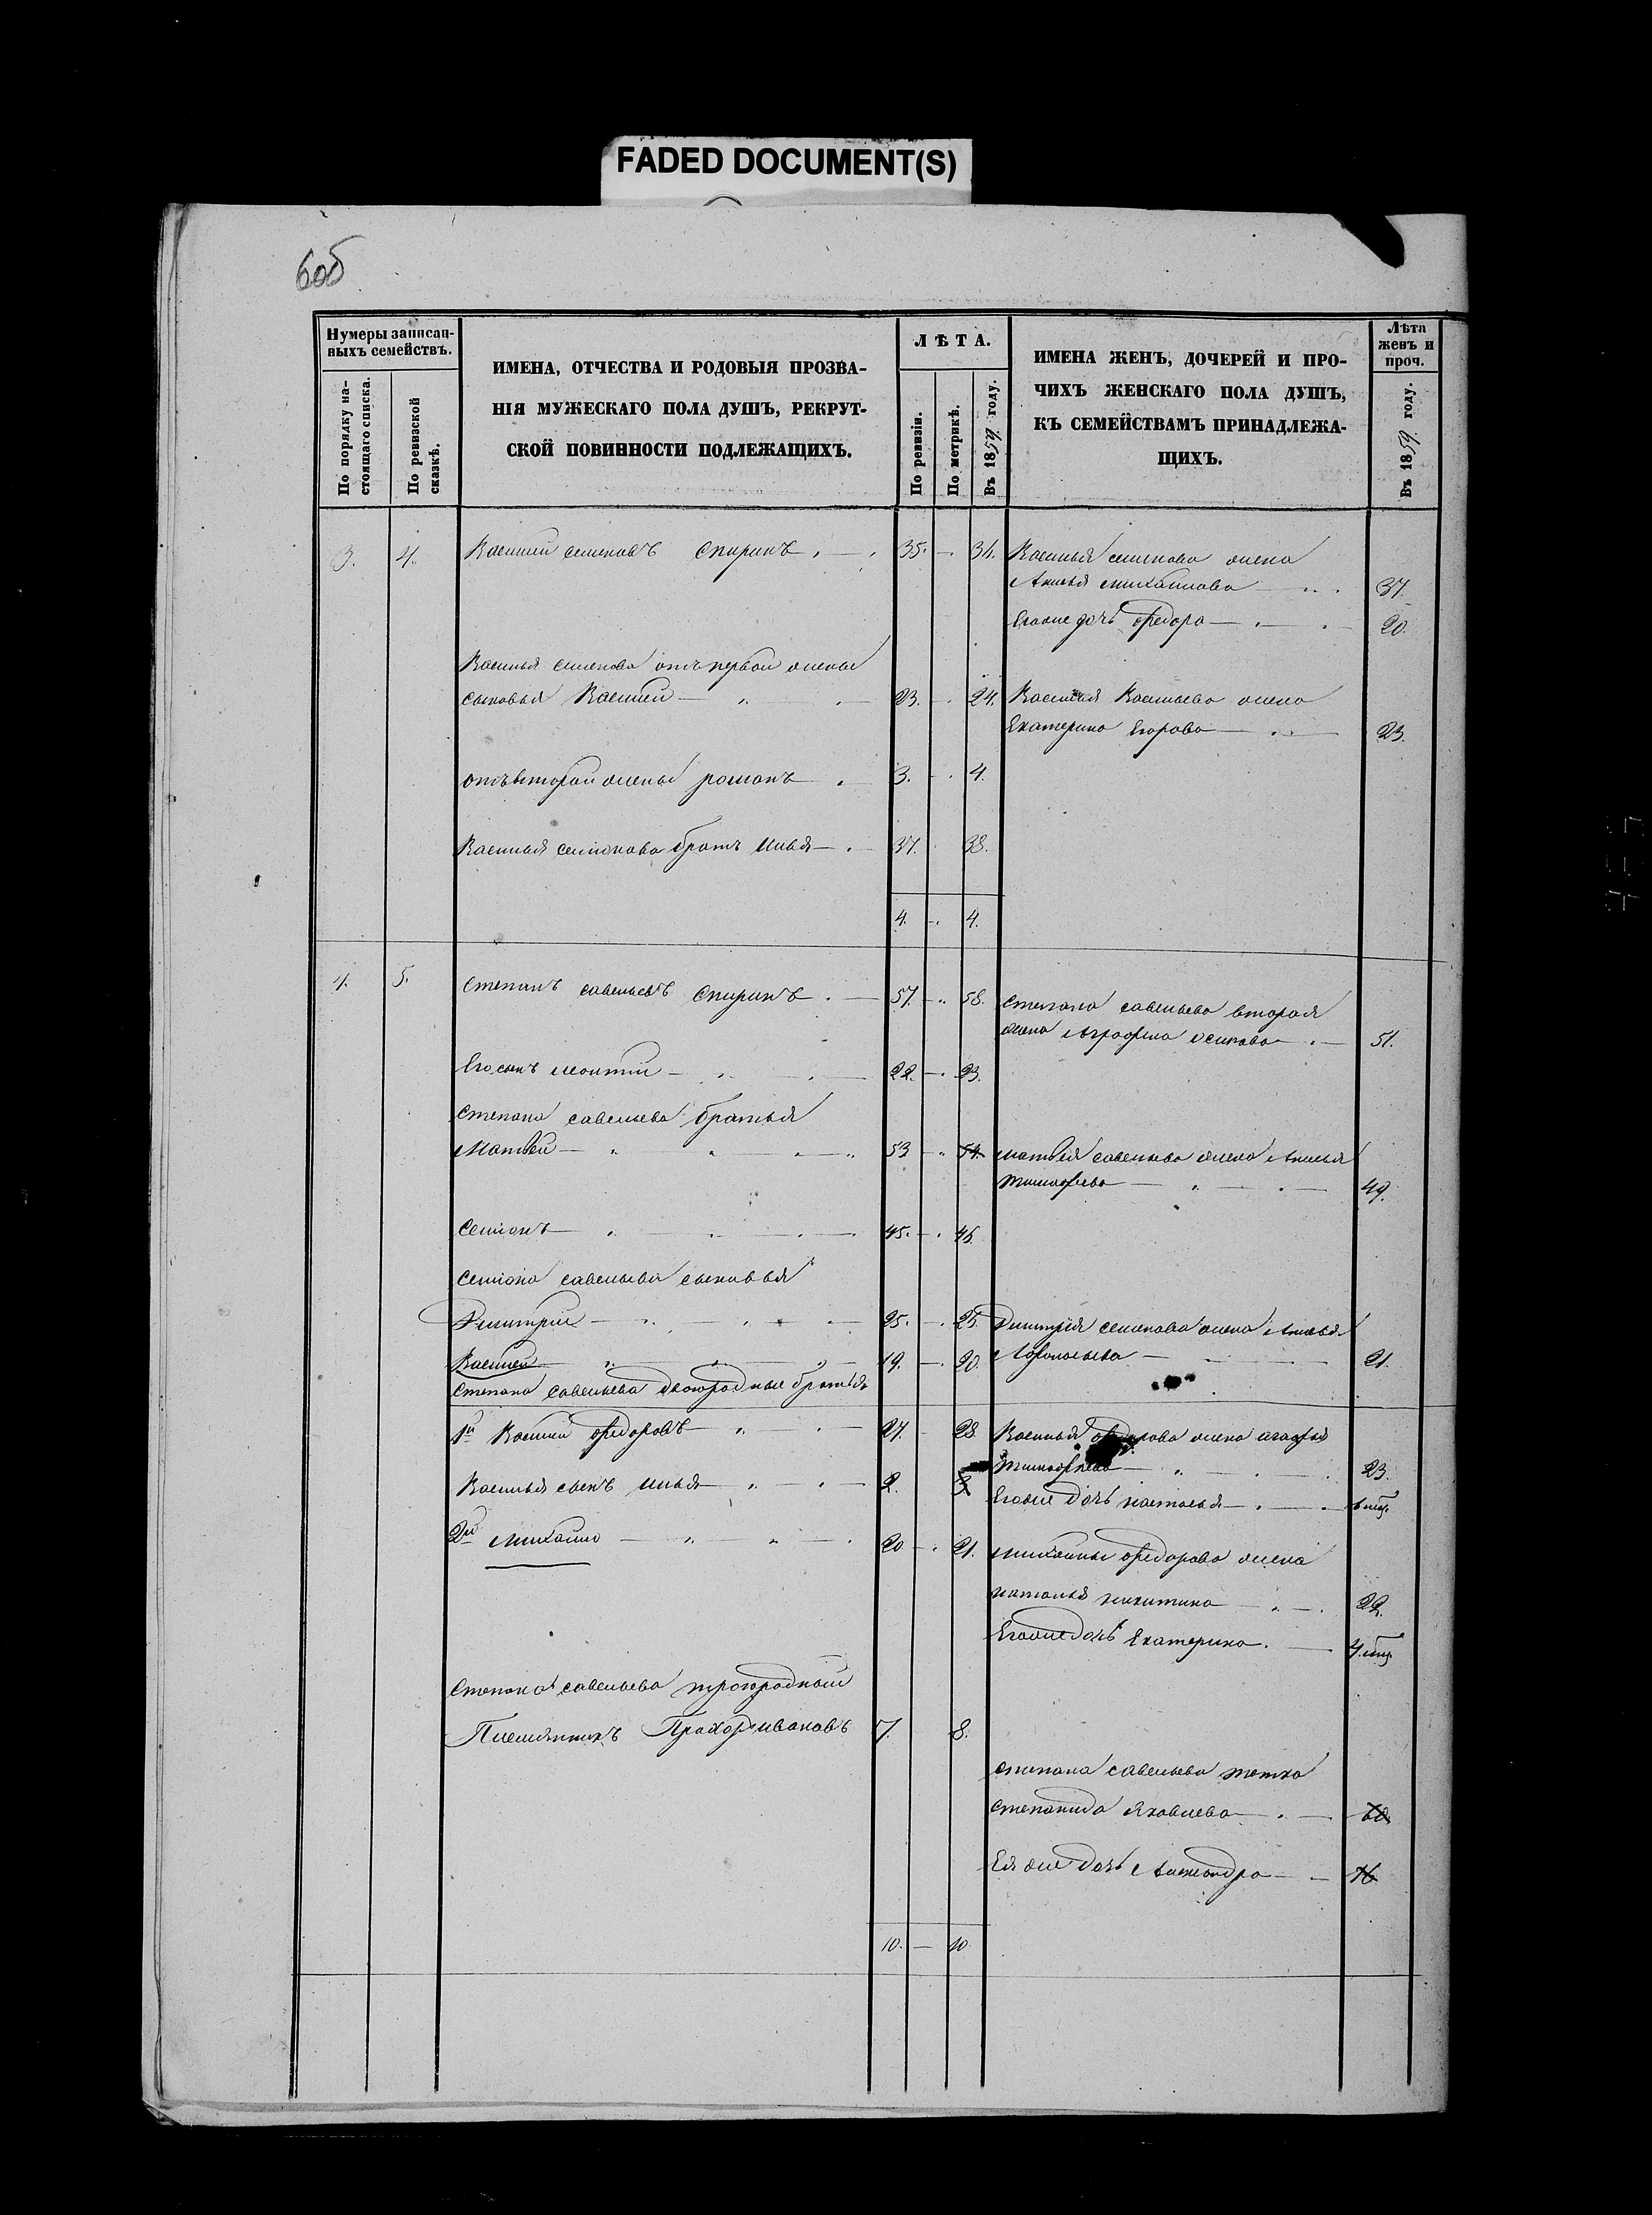 FADED DOCUMENT(S)
6об
Нумеры записан-
ныхъ семействъ.
По порядку на-
стоящаго списка.
По ревизской
сказкѣ.
ИМЕНА, ОТЧЕСТВА И РОДОВЫЯ ПРОЗВА-
НІЯ МУЖЕСКАГО ПОЛА ДУШЪ, РЕКРУТ-
СКОЙ ПОВИННОСТИ ПОДЛЕЖАЩИХЪ.
ЛѢТА.
По ревизіи.
По метрикѣ.
Въ 1859 году.
ИМЕНА ЖЕНЪ, ДОЧЕРЕЙ И ПРО-
ЧИХЪ ЖЕНСКАГО ПОЛА ДУШЪ,
КЪ СЕМЕЙСТВАМЪ ПРИНАДЛЕЖА-
ЩИХЪ.
Лѣта
женъ и
проч.
Въ 1859 году.
3. 4. Василий семеновъ Спиринъ 35. 36. Василья семенова жена
Анисья михайлова 37.
Егоже дочь федора 20.
Василья семенова отъ первой жены
сыновья Василей 23. 24. Василья Васильева жена
Екатерина Егорова 23.
отъ второй жены романъ 3. 4.
Василья семионова братъ Илья 37. 38.
4. 4.
4. 5. степанъ савельевъ Спиринъ 57. 58. степана савельева вторая
жена Аграфена осипова 51.
Его сынъ 22. 23.
степана савельева братья
Матвей 53 54. матвея савельева жена Анисья
тимофеева 49.
семионъ 45. 46.
семиона савельева сыновья
Дмитрий 25. 26. Дмитрия семенова жена Анисья
Афонасьева 21.
Василей 19. 20.
степана савельева двоюродные братья
1й Василий федоровъ 27. 28. Василья федорова жена агафья
тимофеева 23.
Василья сынъ Илья 2. 3 Егоже дочь наталья 6 мѣс.
2й михайло 20 21. михайлы федорова жена
наталья никитина 22.
Егоже дочь Екатерина. 4. мѣс.
степана савельева троюродный
Племянникъ Прохоръ ивановъ 7. 8.
степана савельева тетка
степанида Яковлева 60
Ея же дочь Александра 16
10. 10.